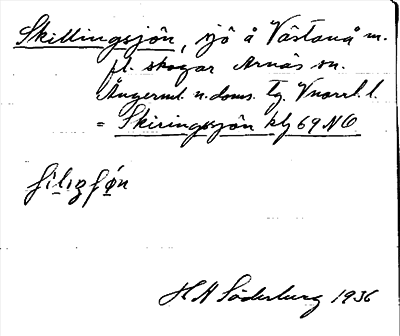 Skillingsjön, sjö å Västanå m.
fl. skogar Arnäs sn.
Ångerml. n. doms. tg. Vnorrl. l.
= Skiringssjön klg 69 NO
H H Söderburg 1936